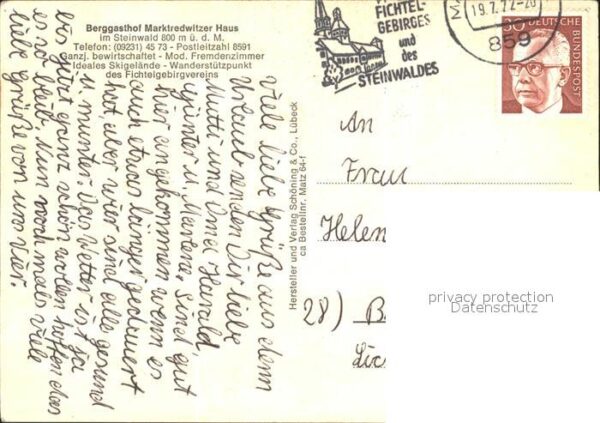 Berggasthof Marktredwitzer Haus
im Steinwald 800 m ü. d. M.
Telefon: (09231) 45 73 - Postleitzahl 8591
Ganzj. bewirtschaftet - Mod. Fremdenzimmer
Ideales Skigelände - Wanderstützpunkt
des Fichtelgebirgsvereins
Viele liebe Grüße aus dem
Urlaub senden Dir liebe
Mutti und Oma Harald,
Günter u. Sind gut
hier angekommen wenn es
auch etwas länger gedauert
hat, aber wir sind alle gesund
u. munter. Das Wetter ist ja
bis jetzt ganz schön wollen hoffen das
es so bleibt. Nun nochmals viele
liebe Grüße von uns vier.
Hersteller und Verlag Schöning & Co., Lübeck
ca Bestellnr. Matz 64-f
FICHTEL-
GEBIRGES
und
des
STEINWALDES
19.7.72-20
859
30 DEUTSCHE
BUNDESPOST
An
Frau
Helen
28) B
privacy protection
Datenschutz